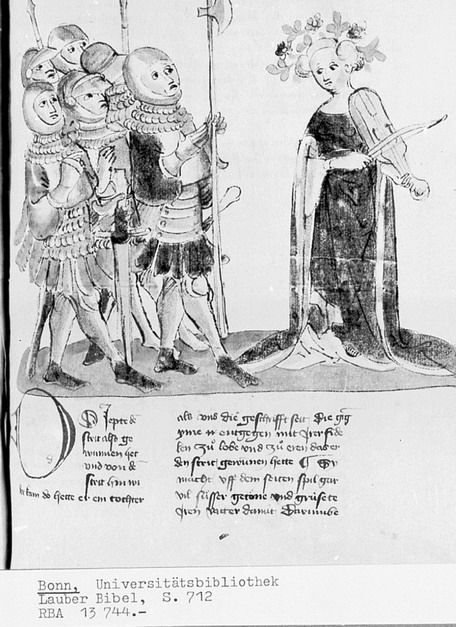 Do Jepte dē
strit also ge
wunnen het
vnd von dē
strit hin wi
der kam do hette er ein tochter
als vns die geschrifft seit Die gīg
yme in entgegen mit Jrer fide
len zů lobe vnd zů eren das er
den strit gewunen hette Sÿ
macht vff dem seiten spil gar
vil susser getone vnd grůsete
Jren vatter damit Darumbe
Bonn, Universitätsbibliothek
Lauber Bibel, S. 712
RBA 13 744.-